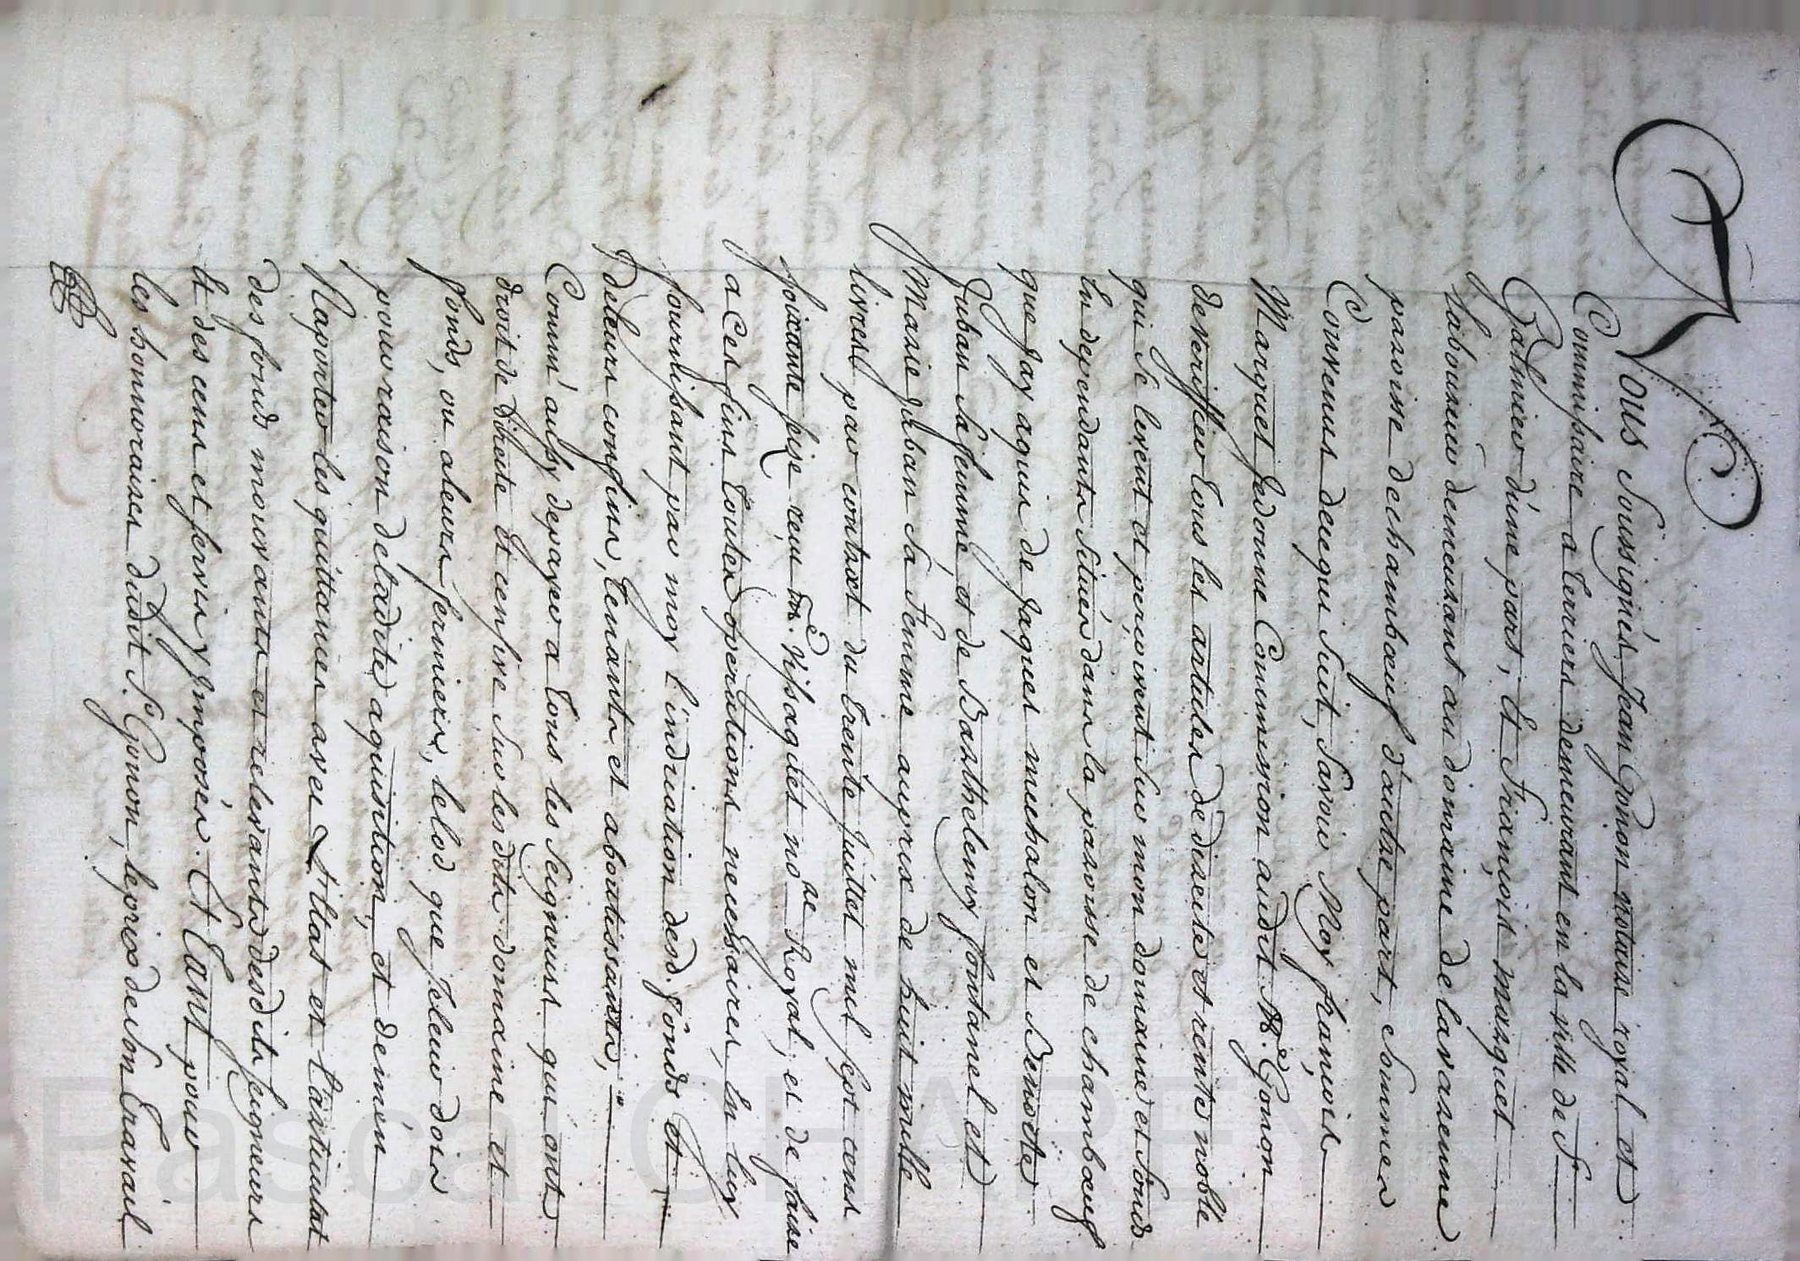 Nous Soussignés Jean Gonon notaire royal et
Commissaire a terriers demeurant en la ville de St
Galmier d'une part, Et François marquet
Laboureur demeurant au domaine de la varenne
paroisse de chambœuf d'autre part, sommes
Convenus de ce qui suit, savoir Moy françois
Marquet Jedonne Commission audit Me. Gonon
de veriffier tous les articles de directe et rente noble
qui se levent et perçoivent sur mon domaine et fonds
En dependants situés dans la paroisse de chambœuf
que Jay aquis de Jaques michalon et Benoite
Juban sa femme, et de Barthelemy fontanel et
Marie Juban sa femme au prix de huit mille
livres par contrat du trente Juillet mil sept cens
soixante size reçu Me. Vissaguet nore Royal, et de faire
a Ces fins toutes operations necessaires, En luy
fournissant par moy l'indication desd. fonds et
de leurs confins, tenants et aboutissants,
Comm' aussy de payer a tous les seigneurs qui ont
droit de directe et censive sur lesdits domaine et
fonds, ou a leurs fermiers, le lod que Je leur dois
pour raison de ladite aquisition, et de m'en
Raporter les quittances avec l'Etat et l'article
des fonds mouvants et relevants desdits seigneurs
Et des cens et servis y Imposés. Et tant pour
les honnoraires dudit Sr. Gonon, le prix de son travail